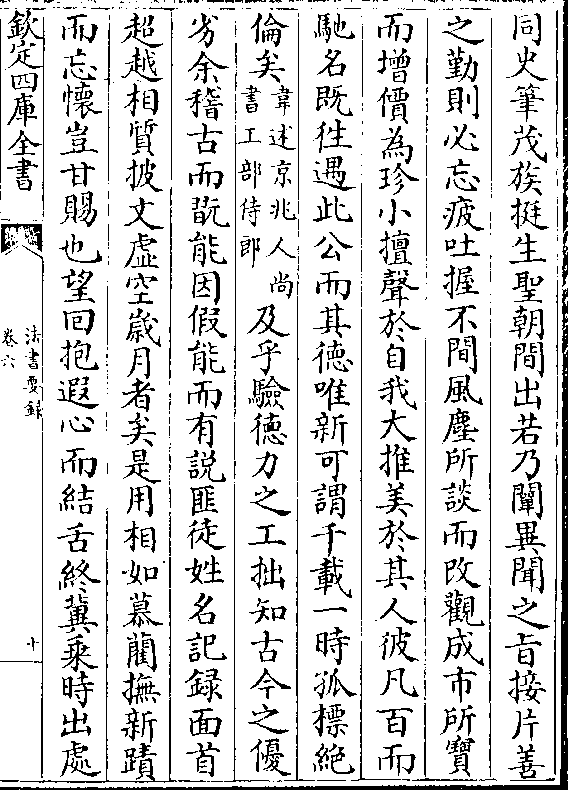 同史筆茂族挺生聖朝間出若乃闡異聞之旨接片善
之勤則必忘疲吐握不間風塵所談而改觀成市所寶
而增價為珍小擅聲於自我大推美於其人彼凡百而
馳名既徃遇此公而其徳唯新可謂千載一時孤標絶
倫矣
韋述京兆人尚
書工部侍郎
及乎驗徳力之工拙知古今之優
劣余稽古而翫能因假能而有説匪徒姓名記録面首
超越相質披文虚空歳月者矣是用相如慕藺撫新蹟
而忘懐豈甘賜也望回抱遐心而結舌終冀乘時出處
欽定四庫全書
法書要録
卷六
十